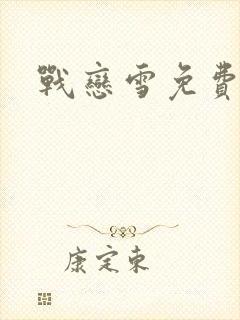 戰戀雪免費
康定東